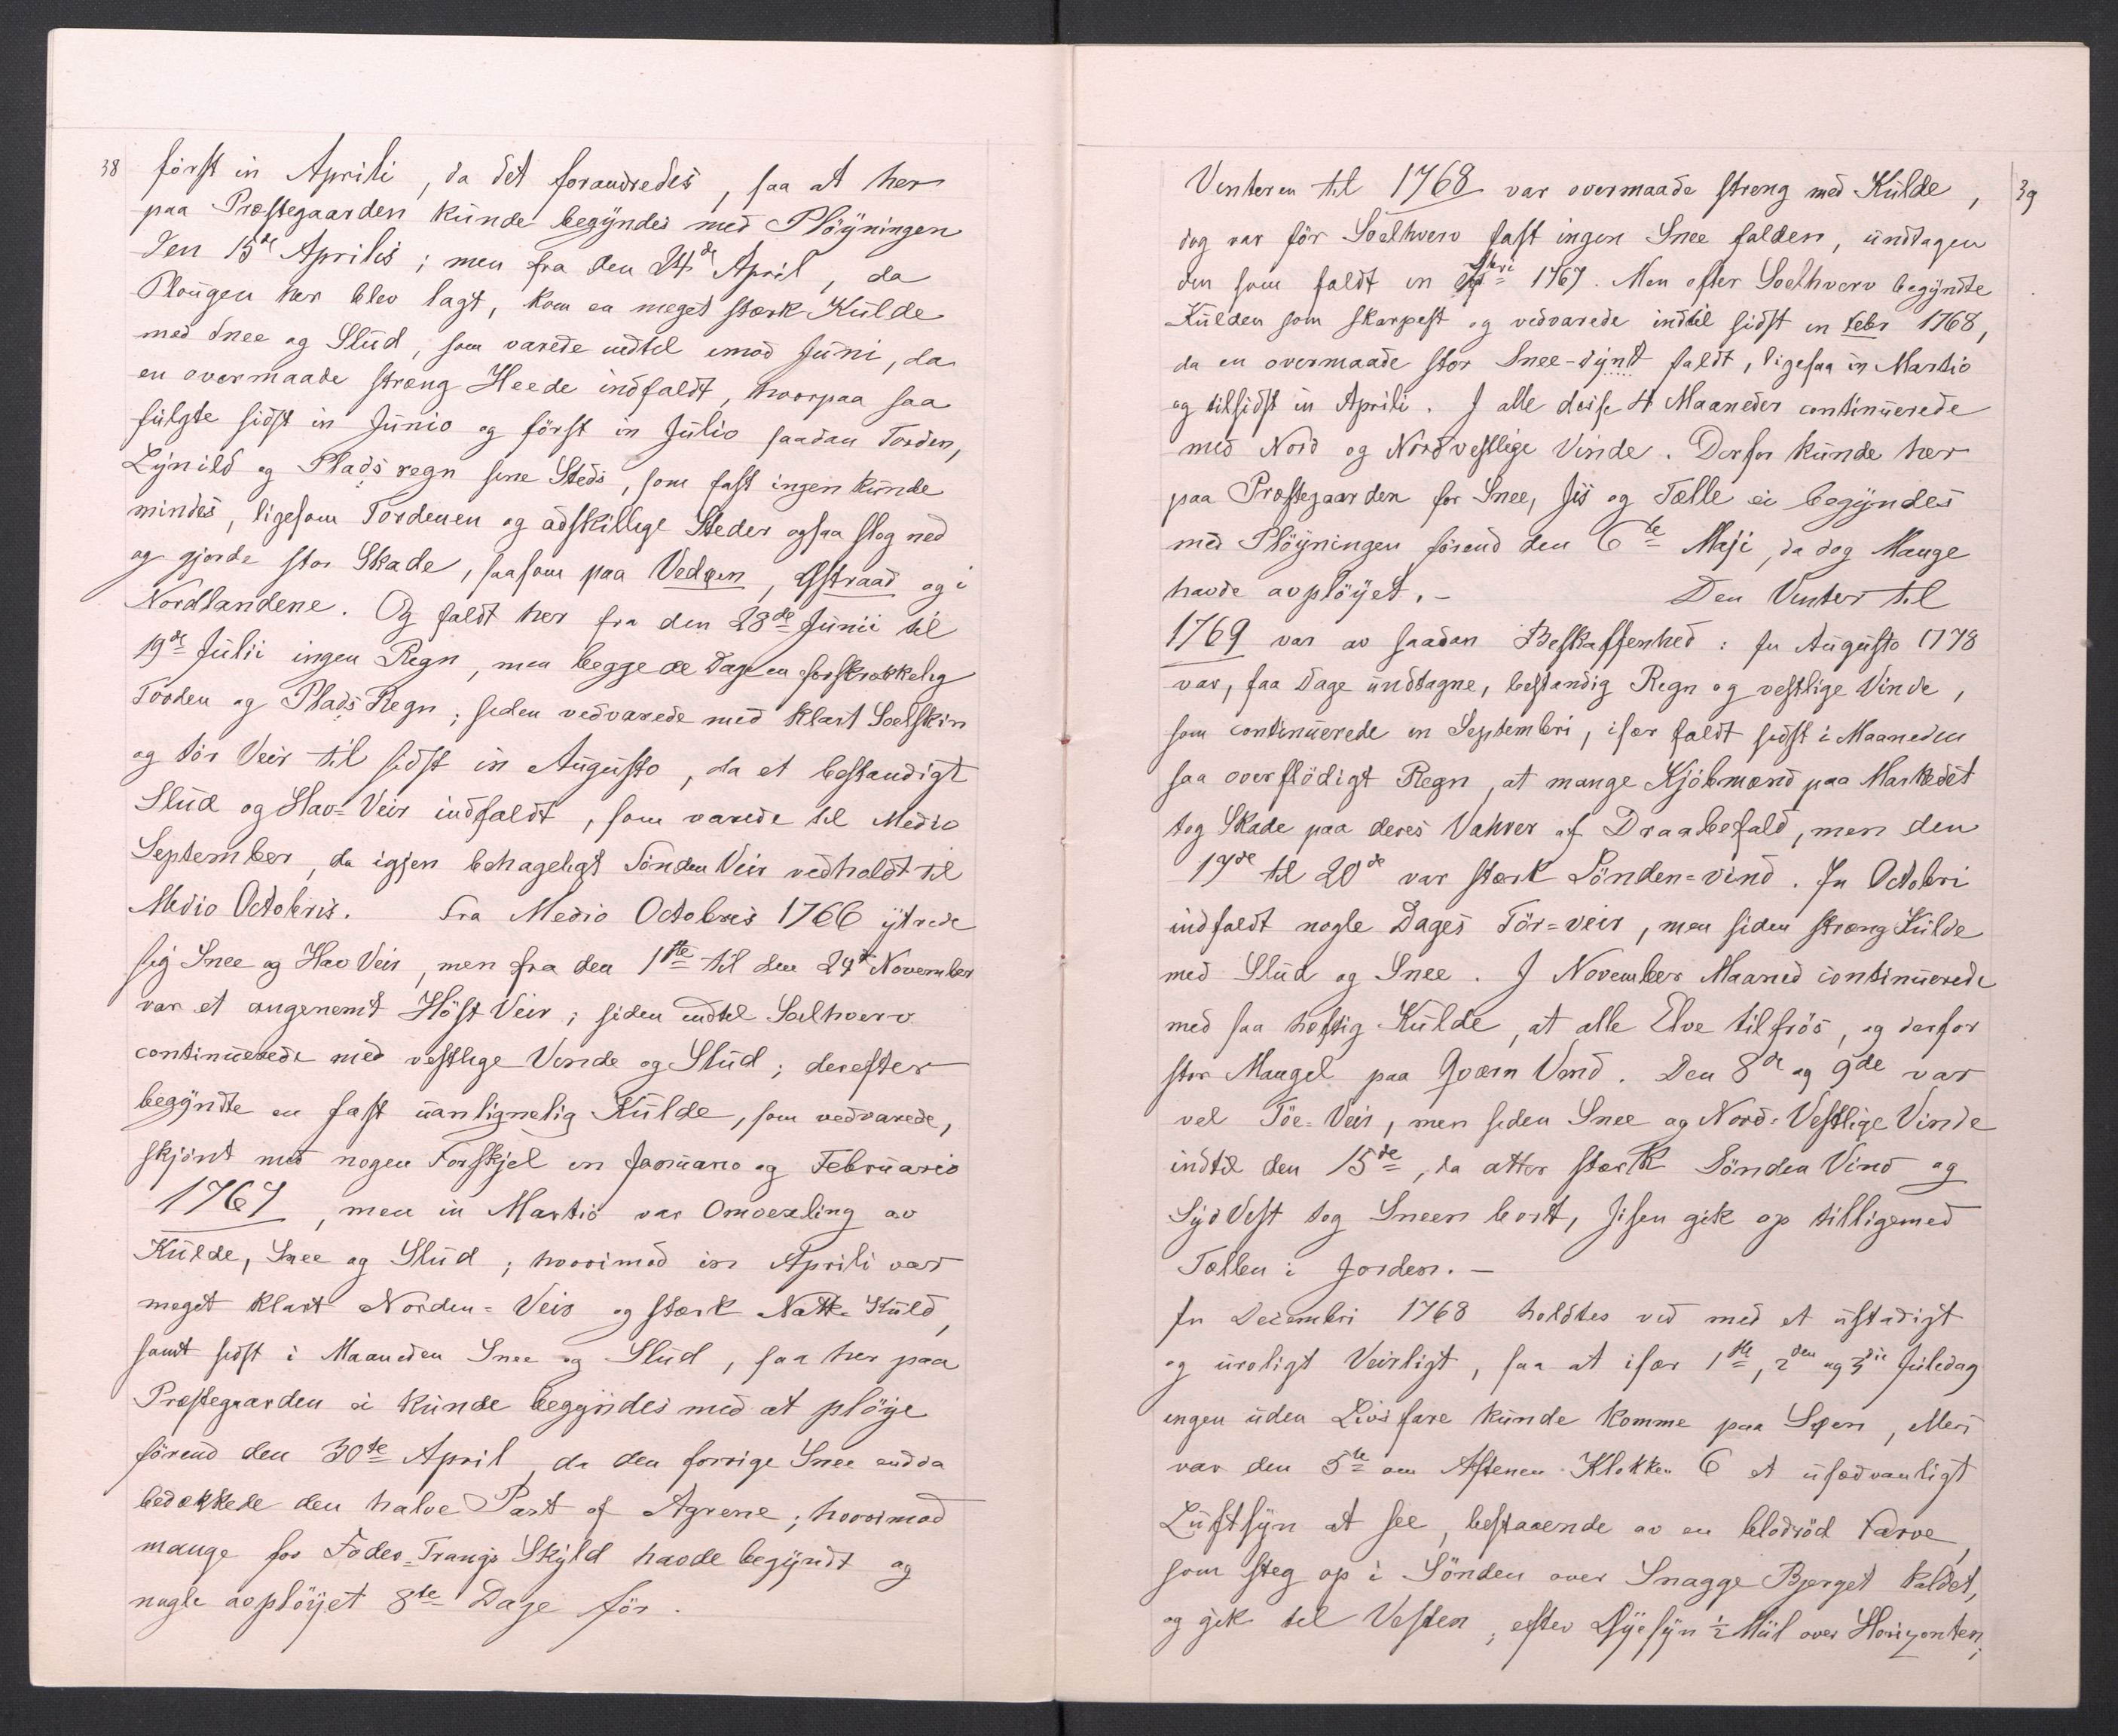 38
först in Aprili, da det forandredes, saa at her
paa Præstegaarden kunde begyndes med Plöyningen
den 15de Aprilis; men fra den 24de April, da
Plougen her blev lagt, kom en meget stærk Kulde
med Snee og Slud, som varede indtil imod Juni, da
en overmaade streng Heede indfaldt, hvorpaa saa
fulgte sidst in Junio og först in Julio saadan Torden,
Lynild og Plads regn sine Steds, som fast ingen kunde
mindes, ligesom Tordenen og adskillige Steder ogsaa slog ned
og gjorde stor Skade, saasom paa Vedøen, Østraad og i
Nordlandene. Og faldt her fra den 28de Junii til
19de Julii ingen Regn, men begge de Dage en forskrækkelig
Torden og Plads Regn; siden vedvarede med klart Soelskin
og tör Veir til sidst in Augusto, da et bestandigt
Slud og Hav-Veir indfaldt, som varede til Medio
September, da igjen behageligt Sönden Veir vedholdt til
Medio Octobris. Fra Medio Octobris 1766 ytrede
sig Snee og Hav Veir, men fra den 1ste til den 24de November
var et angenemt Höst Veir; siden indtil Soelhverv
continuerede med vestlige Vinde og Slud; derefter
begyndte en fast uanlignelig Kulde, som vedvarede,
skjönt med nogen Forskjel in Januario og Februario
1767, men in Martio var Omvexling av
Kulde, Snee og Slud; hvorimod in Aprili var
meget klart Norden-Veir og stærk Natte-Kuld,
samt sidst i Maaneden Snee og Slud, saa her paa
Præstegaarden ei kunde begyndes med at plöye
förend den 30te April, da den forrige Snee endda
bedækkede den halve Part af Agrene; hvorimod
mange for Foder-Trangs Skyld havde begyndt og
nogle avplöyet 8te Dage för.
39
Vinteren til 1768 var overmaade streng med Kulde,
dog var för Soelhverv fast ingen Snee falden, undtagen
den som faldt in 1767. Men efter Soelhverv begyndte
Kulden som skarpest og vedvarede indtil sidst in Febr 1768,
da en overmaade stor Snee-dynt faldt, ligesaa in Martio
og tilsidst in Aprili. I alle disse 4 Maaneder continuerede
med Nord og Nordvestlige Vinde. Derfor kunde her
paa Præstegaarden for Snee, Iis og Tælle ei begyndes
med Plöyningen förend den 6te Maji, da dog Mange
havde avplöyet. - Den Vinter til
1769 var av saadan Beskaffenhed: In Augusto 1778
var, faa Dage undtagne, bestandig Regn og vestlige Vinde,
som continuerede in Septembri, især faldt sidst i Maaneden
saa overflödigt Regn, at mange Kjöbmænd paa Markedet
tog Skade paa deres Vahrer af Draabefald, men den
17de til 20de var stærk Sönden-vind. In Octobri
indfaldt nogle Dages Tör-veir, men siden streng Kulde
med Slud og Snee. I November Maaned continuerede
med saa heftig Kulde, at alle Elve tilfrös, og derfor
stor Mangel paa Qværn Vand. Den 8de og 9de var
vel Töe-Veir, men siden Snee og Nord-Vestlige Vinde
indtil den 15de, da atter stærk Sönden Vind og
Syd Vest tog Sneen bort, Iisen gik op tilligemed
Tællen i Jorden. -
In Decembri 1768 holdtes ved med et ustadigt
og uroligt Veirligt, saa at især 1ste, 2den og 3die Juledag
ingen uden Livsfare kunde komme paa Søen, Men
var den 5te om Aftenen Klokken 6 et usædvanligt
Luftsyn at see, bestaaende av en blodröd Farve,
som steg op i Sönden over Snagge Bjerget kaldet,
og gik til Vesten, efter Øyesyn ½ Miil over Horizonten;